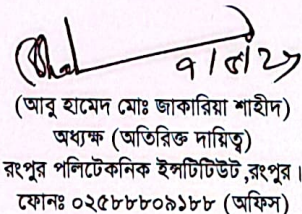 ৭/৫/২৭
(আবু হামেদ মোঃ জাকারিয়া শাহীদ)
অধ্যক্ষ (অতিরিক্ত দায়িত্ব)
রংপুর পলিটেকনিক ইন্সটিটিউট,রংপুর।
ফোনঃ ০২৫৮৮৮০৯১৮৮ (অফিস)